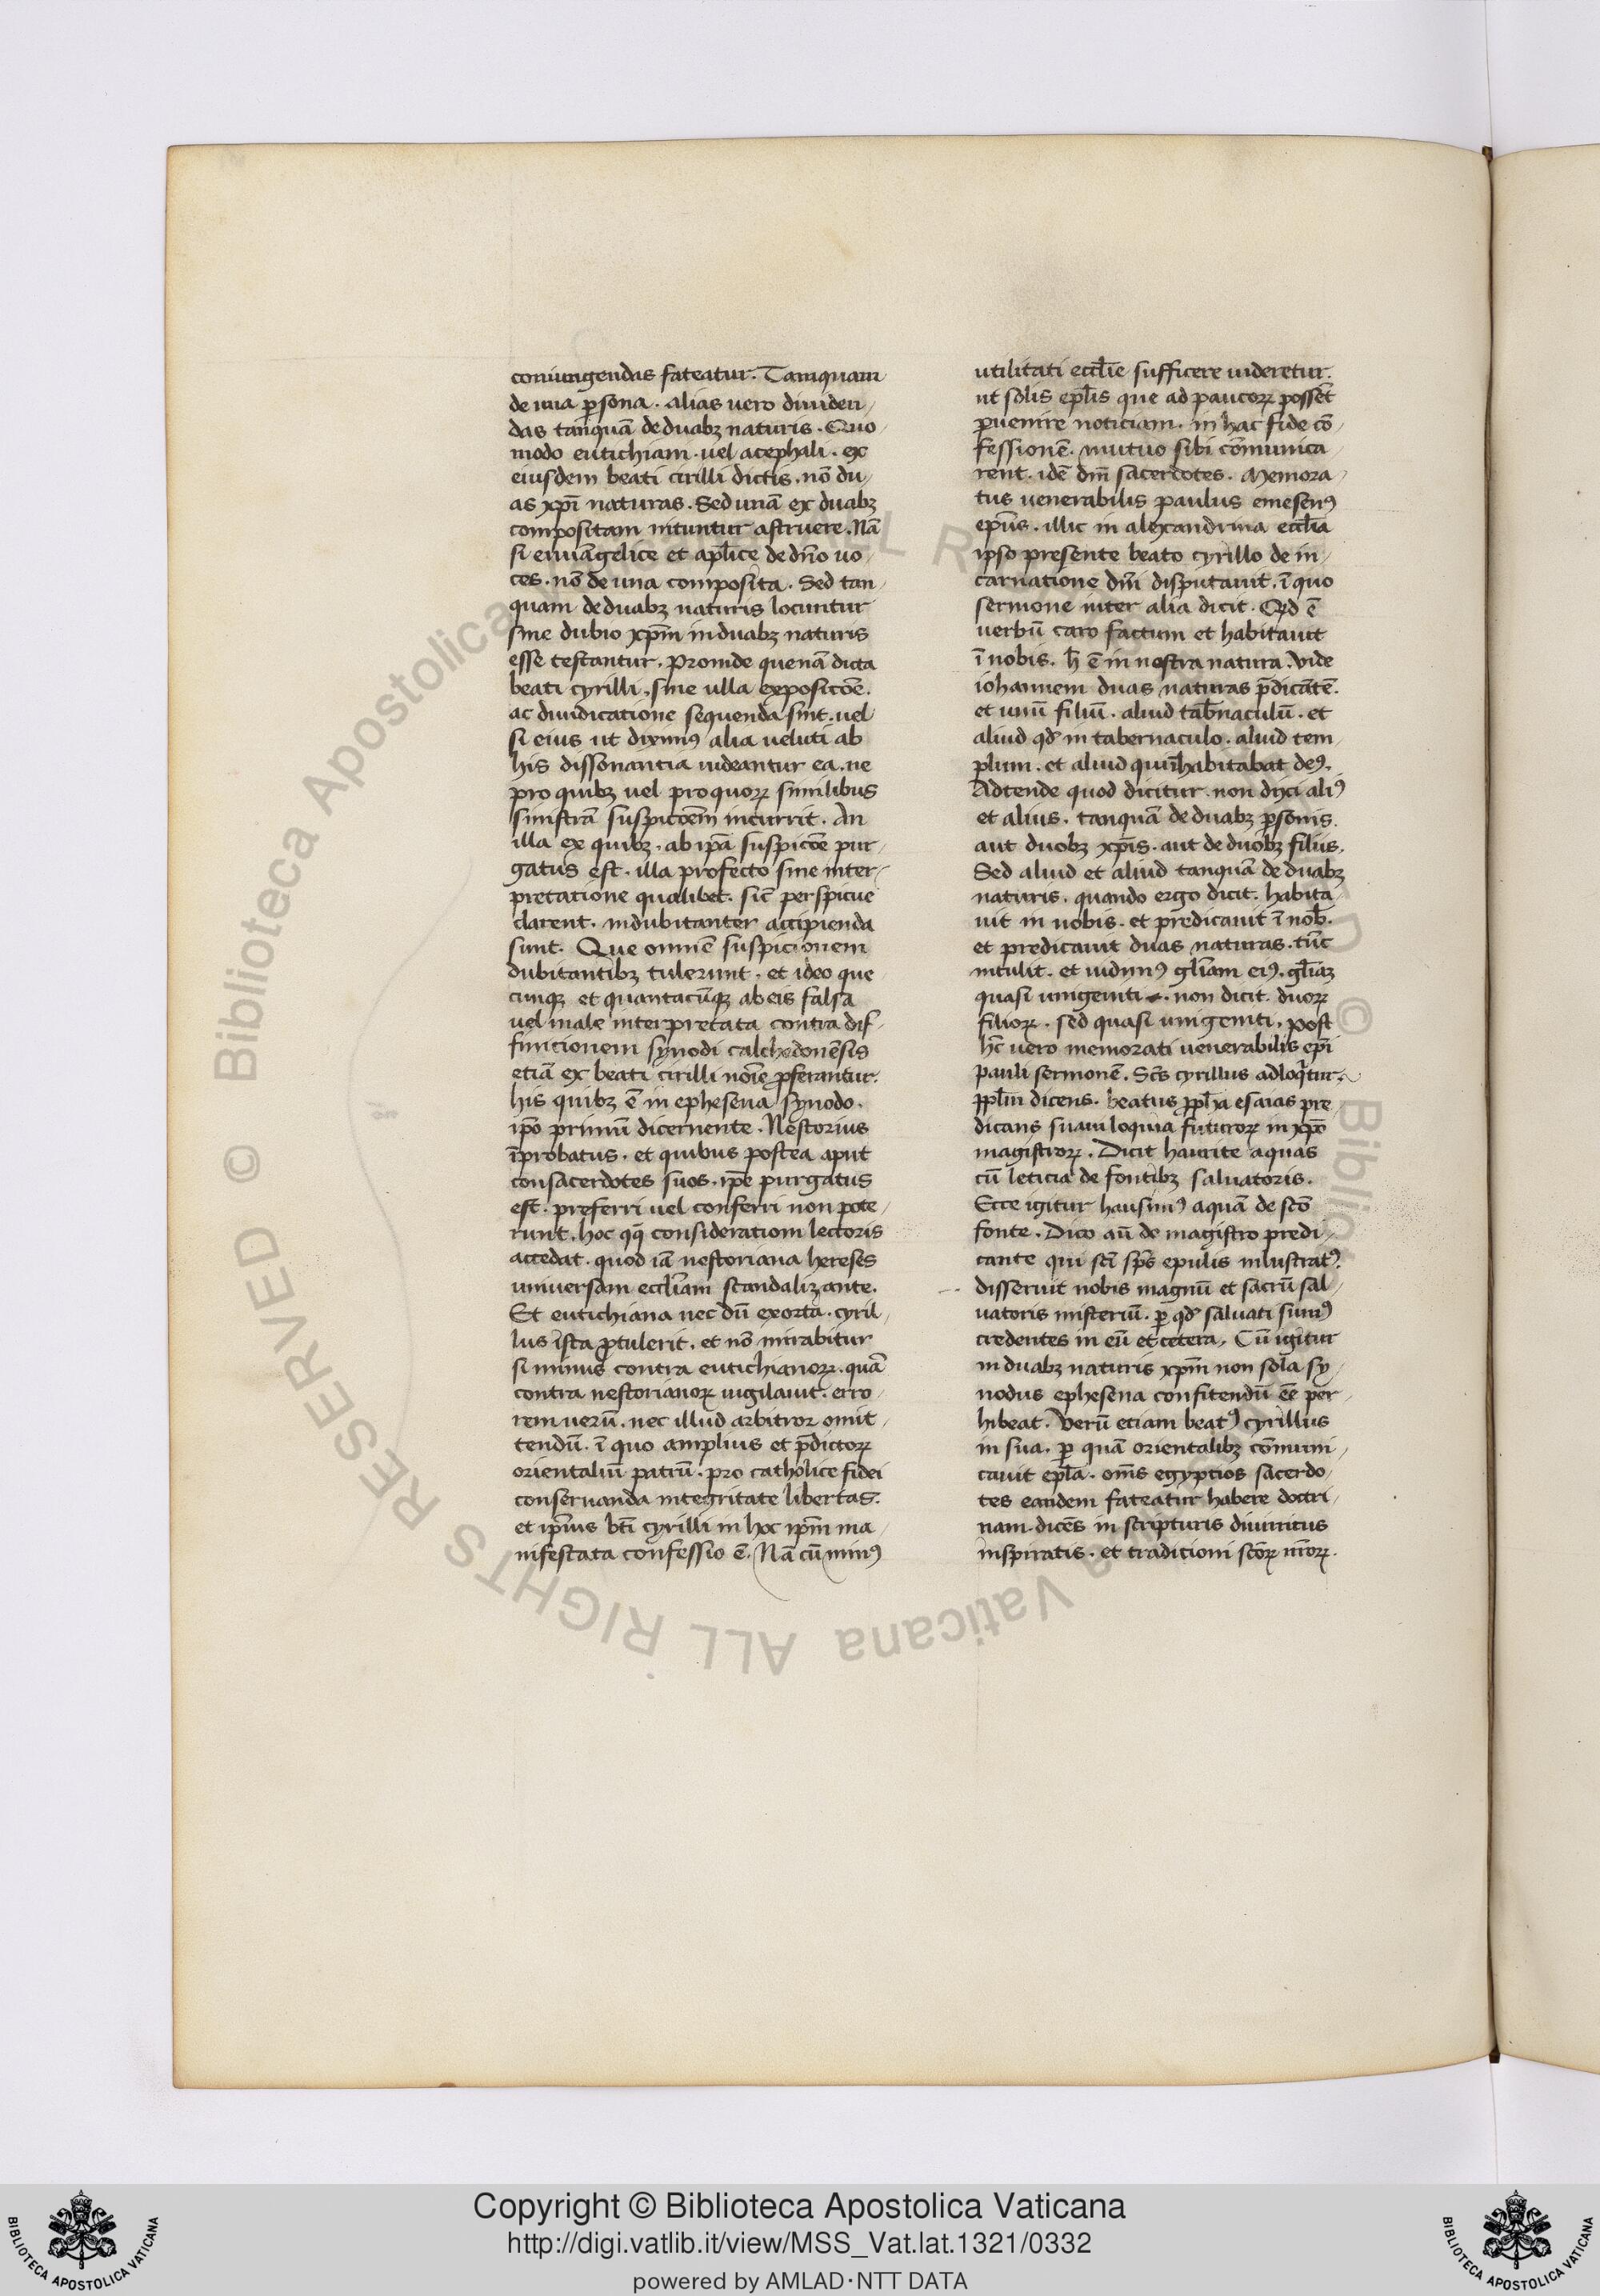 coniungendas fateatur. Tamquam
de una psona. alias uero diuiden-
das tanquā de duabꝫ naturis. Quo-
modo eutichiani. uel acephali. ex
eiusdem beati cirilli dictis. nō du-
as xp̄i naturas. Sed unā ex duabꝫ
compositam nituntur astruere. Nā
si euuāngelice et apl̄ice de dn̄o uo-
ces. nō de una composita. Sed tan-
quam de duabꝫ naturis locuntur
sine dubio xp̄m in duabꝫ naturis
esse testantur. Proinde quenā dicta
beati cyrilli. sine ulla expositōe.
ac diiudicatione sequenda sint. uel
si eius ut diximꝰ alia ueluti ab
his dissonantia uideantur ea. ne
pro quibꝫ uel pro quoꝝ similibus
sinistrā suspicōem incurrit. An
illa ex quibꝫ. ab ip̄a suspicōe pur-
gatus est. illa profecto sine inter-
pretatione qualibet. sic̄ perspicue
clarent. indubitanter accipienda
sunt. Que omnē suspicionem
dubitantibꝫ tulerunt. et ideo que
cunqꝫ et quantacūqꝫ ab eis falsa
uel male interpretata contra dif-
finicionem synodi calchedonēsis
etiā ex beati cirilli noīe ꝓferantur.
his quibꝫ ē in ephesena synodo.
ip̄o primū dicernente. Nestorius
īprobatus. et quibus postea aput
consacerdotes suos. ip̄e purgatus
est. preferri uel conferri non pote-
runt. hoc qꝫ considerationi lectoris
accedat. quod iā nestoriana hereses
uniuersam eccl̄iam scandalizante.
Et eutichiana nec dū exorta. cyril-
lus ista ꝓtulerit. et nō mirabitur
si minus contra eutichianoꝝ. quā
contra nestorianoꝝ uigilauit. erro-
rem uerū. nec illud arbitror omit-
tendū. ī quo amplius et p̄dictoꝝ
orientaliū patrū. pro catholice fidei
conseruanda integritate libertas.
et ip̄ius bt̄i cyrilli in hoc ip̄m ma-
nifestata confessio ē. Nā cū minꝰ
utilitati eccl̄ie sufficere uideretur.
ut sōlis ep̄lis que ad paucoꝝ possēt
ꝑuenire noticiam. in hac fide cō-
fessionē. mutuo sibi cōmunica-
rent. idē dn̄i sacerdotes. Memora-
tus uenerabilis paulus emesenꝰ
ep̄us. illic in alexandrina eccl̄ia
ipso presente beato cyrillo de in-
carnatione dn̄i disputauit. ī quo
sermone inter alia dicit. Qd ē
uerbū caro factum et habitauit
ī nobis. h̄ ē in nostra natura. Vide
iohannem duas naturas p̄dicātē.
et unū filiū. aliud tab̄naculū. et
aliud qd̄ in tabernaculo. aliud tem-
plum. et aliud qui inhabitabat deꝰ.
Adtende quod dicitur. non dixi aliꝰ
et alius. tanquā de duabꝫ psonis.
aut duobꝫ xp̄is. aut de duobꝫ filiis.
Sed aliud et aliud tanquā de duabꝫ
naturis. quando ergo dicit. habita-
uit in nobis. et predicauit ī nob̄.
et predicauit duas naturas. tūc
intulit. et uidimꝰ gl̄iam eiꝰ. gl̄iaꝫ
quasi unigeniti. non dicit. duoꝝ
filioꝝ. sed quasi unigeniti. post
hc̄ uero memorati uenerabilis ep̄i
pauli sermonē. Sc̄s cyrillus adloqtur.
ppl̄m dicens. beatus ꝓph̄a esaias pre-
dicans suauiloquia futuroꝝ in xp̄o
magistroꝝ. Dicit haurite aquas
cū leticia de fontibꝫ saluatoris.
Ecce igitur hausimꝰ aquā de scō
fonte. Dico aū de magistro predi-
cante qui sc̄i sp̄s epulis inlustratꝰ.
disseruit nobis magnū et sacrū sal-
uatoris misteriū. ꝑ qd̄ saluati sumꝰ
credentes in eū et cetera. Cū igitur
in duabꝫ naturis xp̄m non sōla sy-
nodus ephesena confitendū eē per-
hibeat. Verū etiam beatꝰ cyrillus
in sua. ꝑ quā orientalibꝫ cōmuni-
cauit epl̄a. om̄s egyptios sacerdo-
tes eandem fateatur habere doctri-
nam. dicēs in scripturis diuinitus
inspiratis. et traditioni scōꝝ nr̄oꝝ.
Copyright © Biblioteca Apostolica Vaticana
http://digi.vatlib.it/view/MSS_Vat.lat.1321/0332
powered by AMLAD·NTT DATA